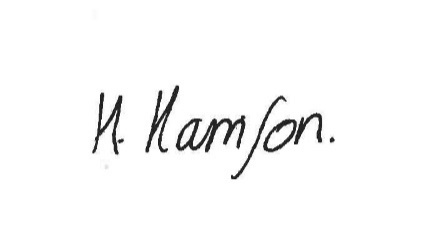 H. Hamson.